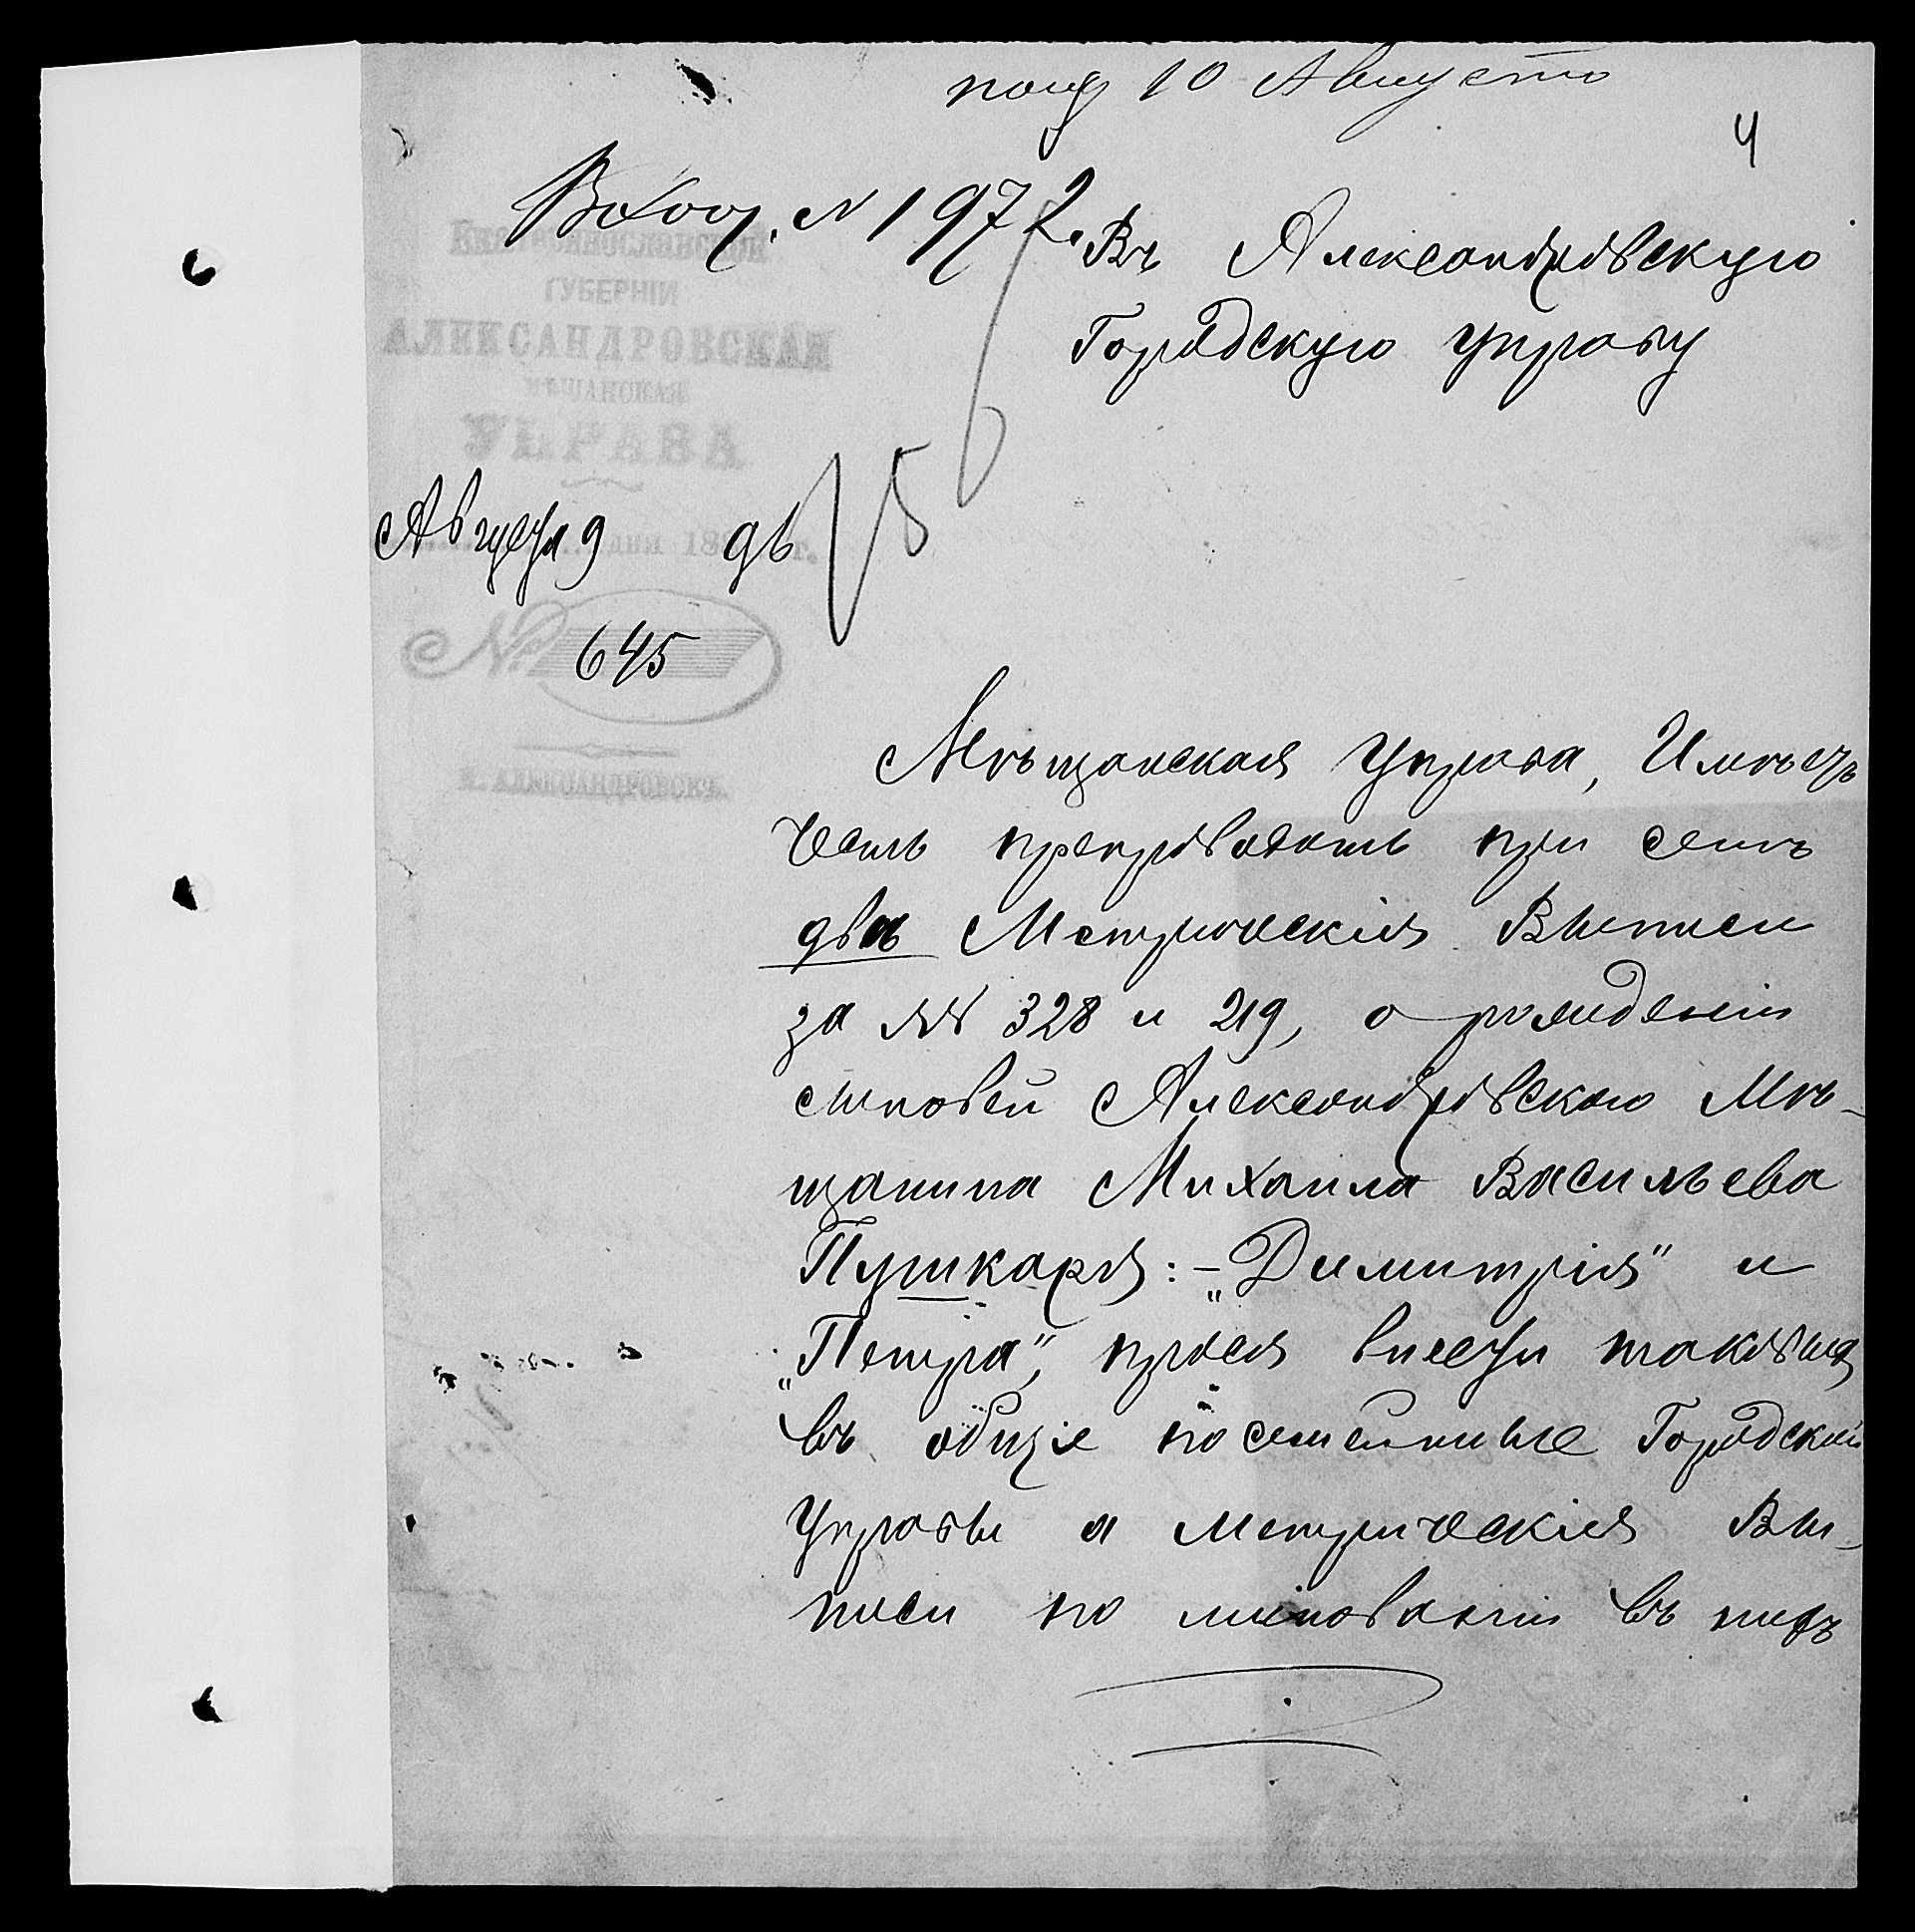 пол 10 Августа
4
Вход. N 1972.
Екатеринославской
ГУБЕРНІИ
АЛЕКСАНДРОВСКАЯ
МѢЩАНСКАЯ
УПРАВА
Августа 9 дня 189 г.
№ 645
Г. АЛЕКСАНДРОВСКЪ.
Въ Александровскую
Городскую Управу
Мѣщанская Управа, Имѣетъ
честь препроводить при семъ
двѣ Метрическія Выписи
за №№ 328 и 219, о рожденіи
сыновей Александровскаго Мѣ-
щанина Михаила Васильева
Пушкаря: - „Димитрія" и
„Петра", прося внести таковыя
въ общіе посемейные Городской
Управы а метрическія Вы-
писи по минованіи въ нихъ